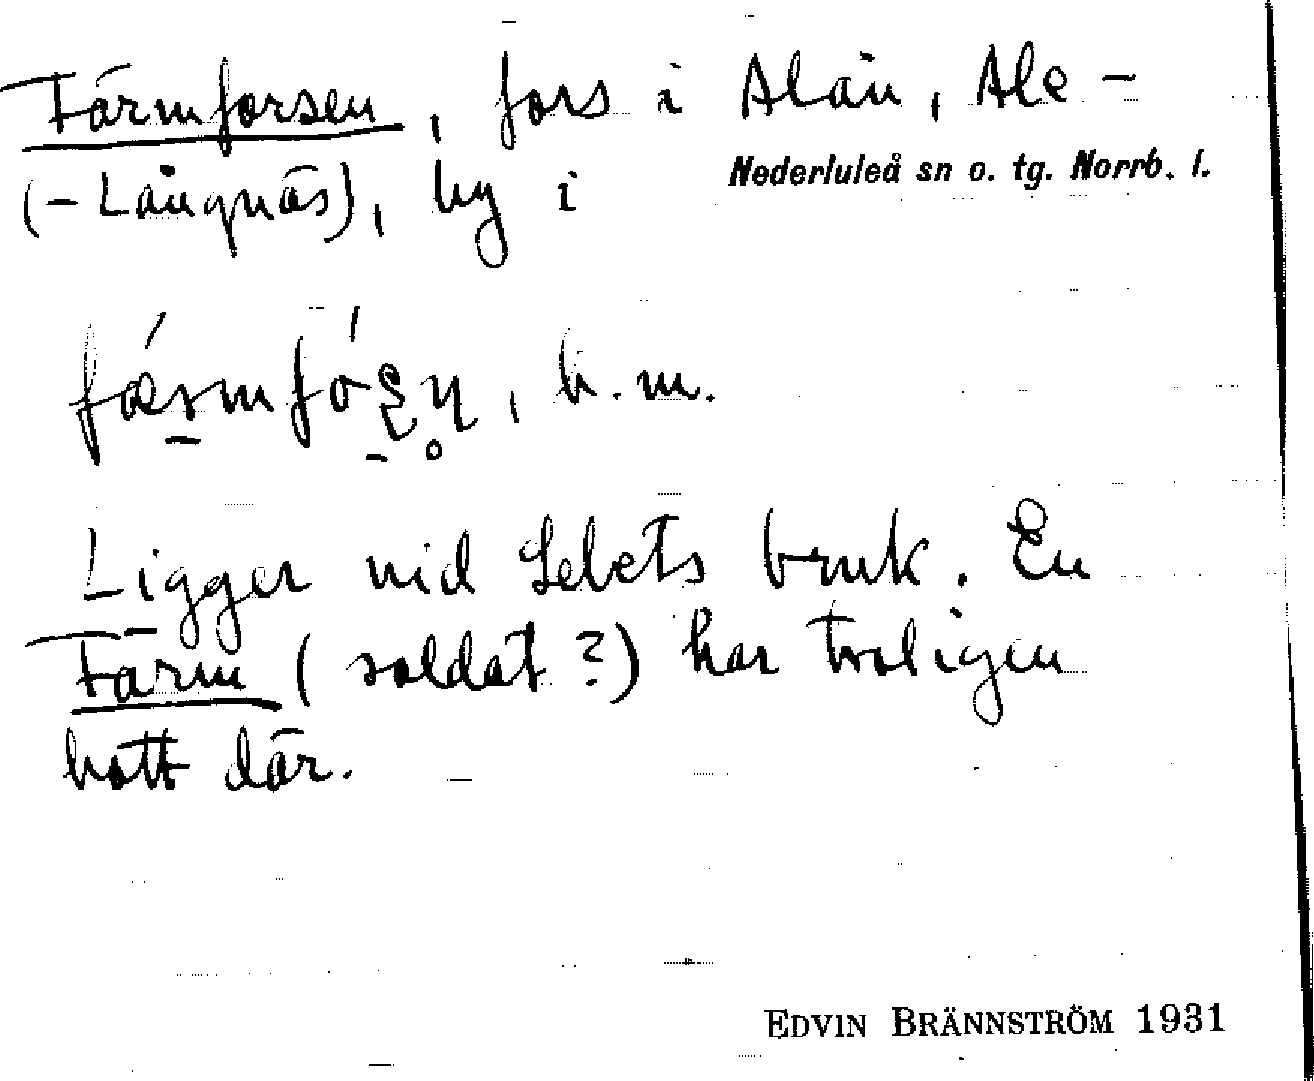 Färmforsen, fors i Alån, Ale-
(-Långnäs), by i Nederluleå sn o. tg. Norrb. l.
b. m.
Ligger vid Selets bruk. En
Färm (soldat?) har troligen
bott där.
EDVIN BRÄNNSTRÖM 1931